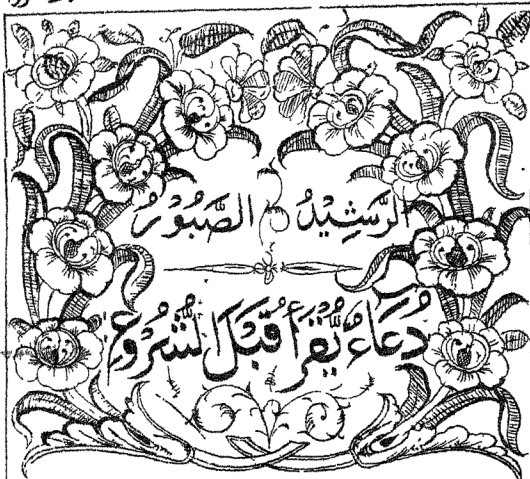 الرَّشِيْدُ الصَّبُوْرُ
دُعَاءٌ يُّقْرَأُ قَبْلَ الشُّرُوْعِ